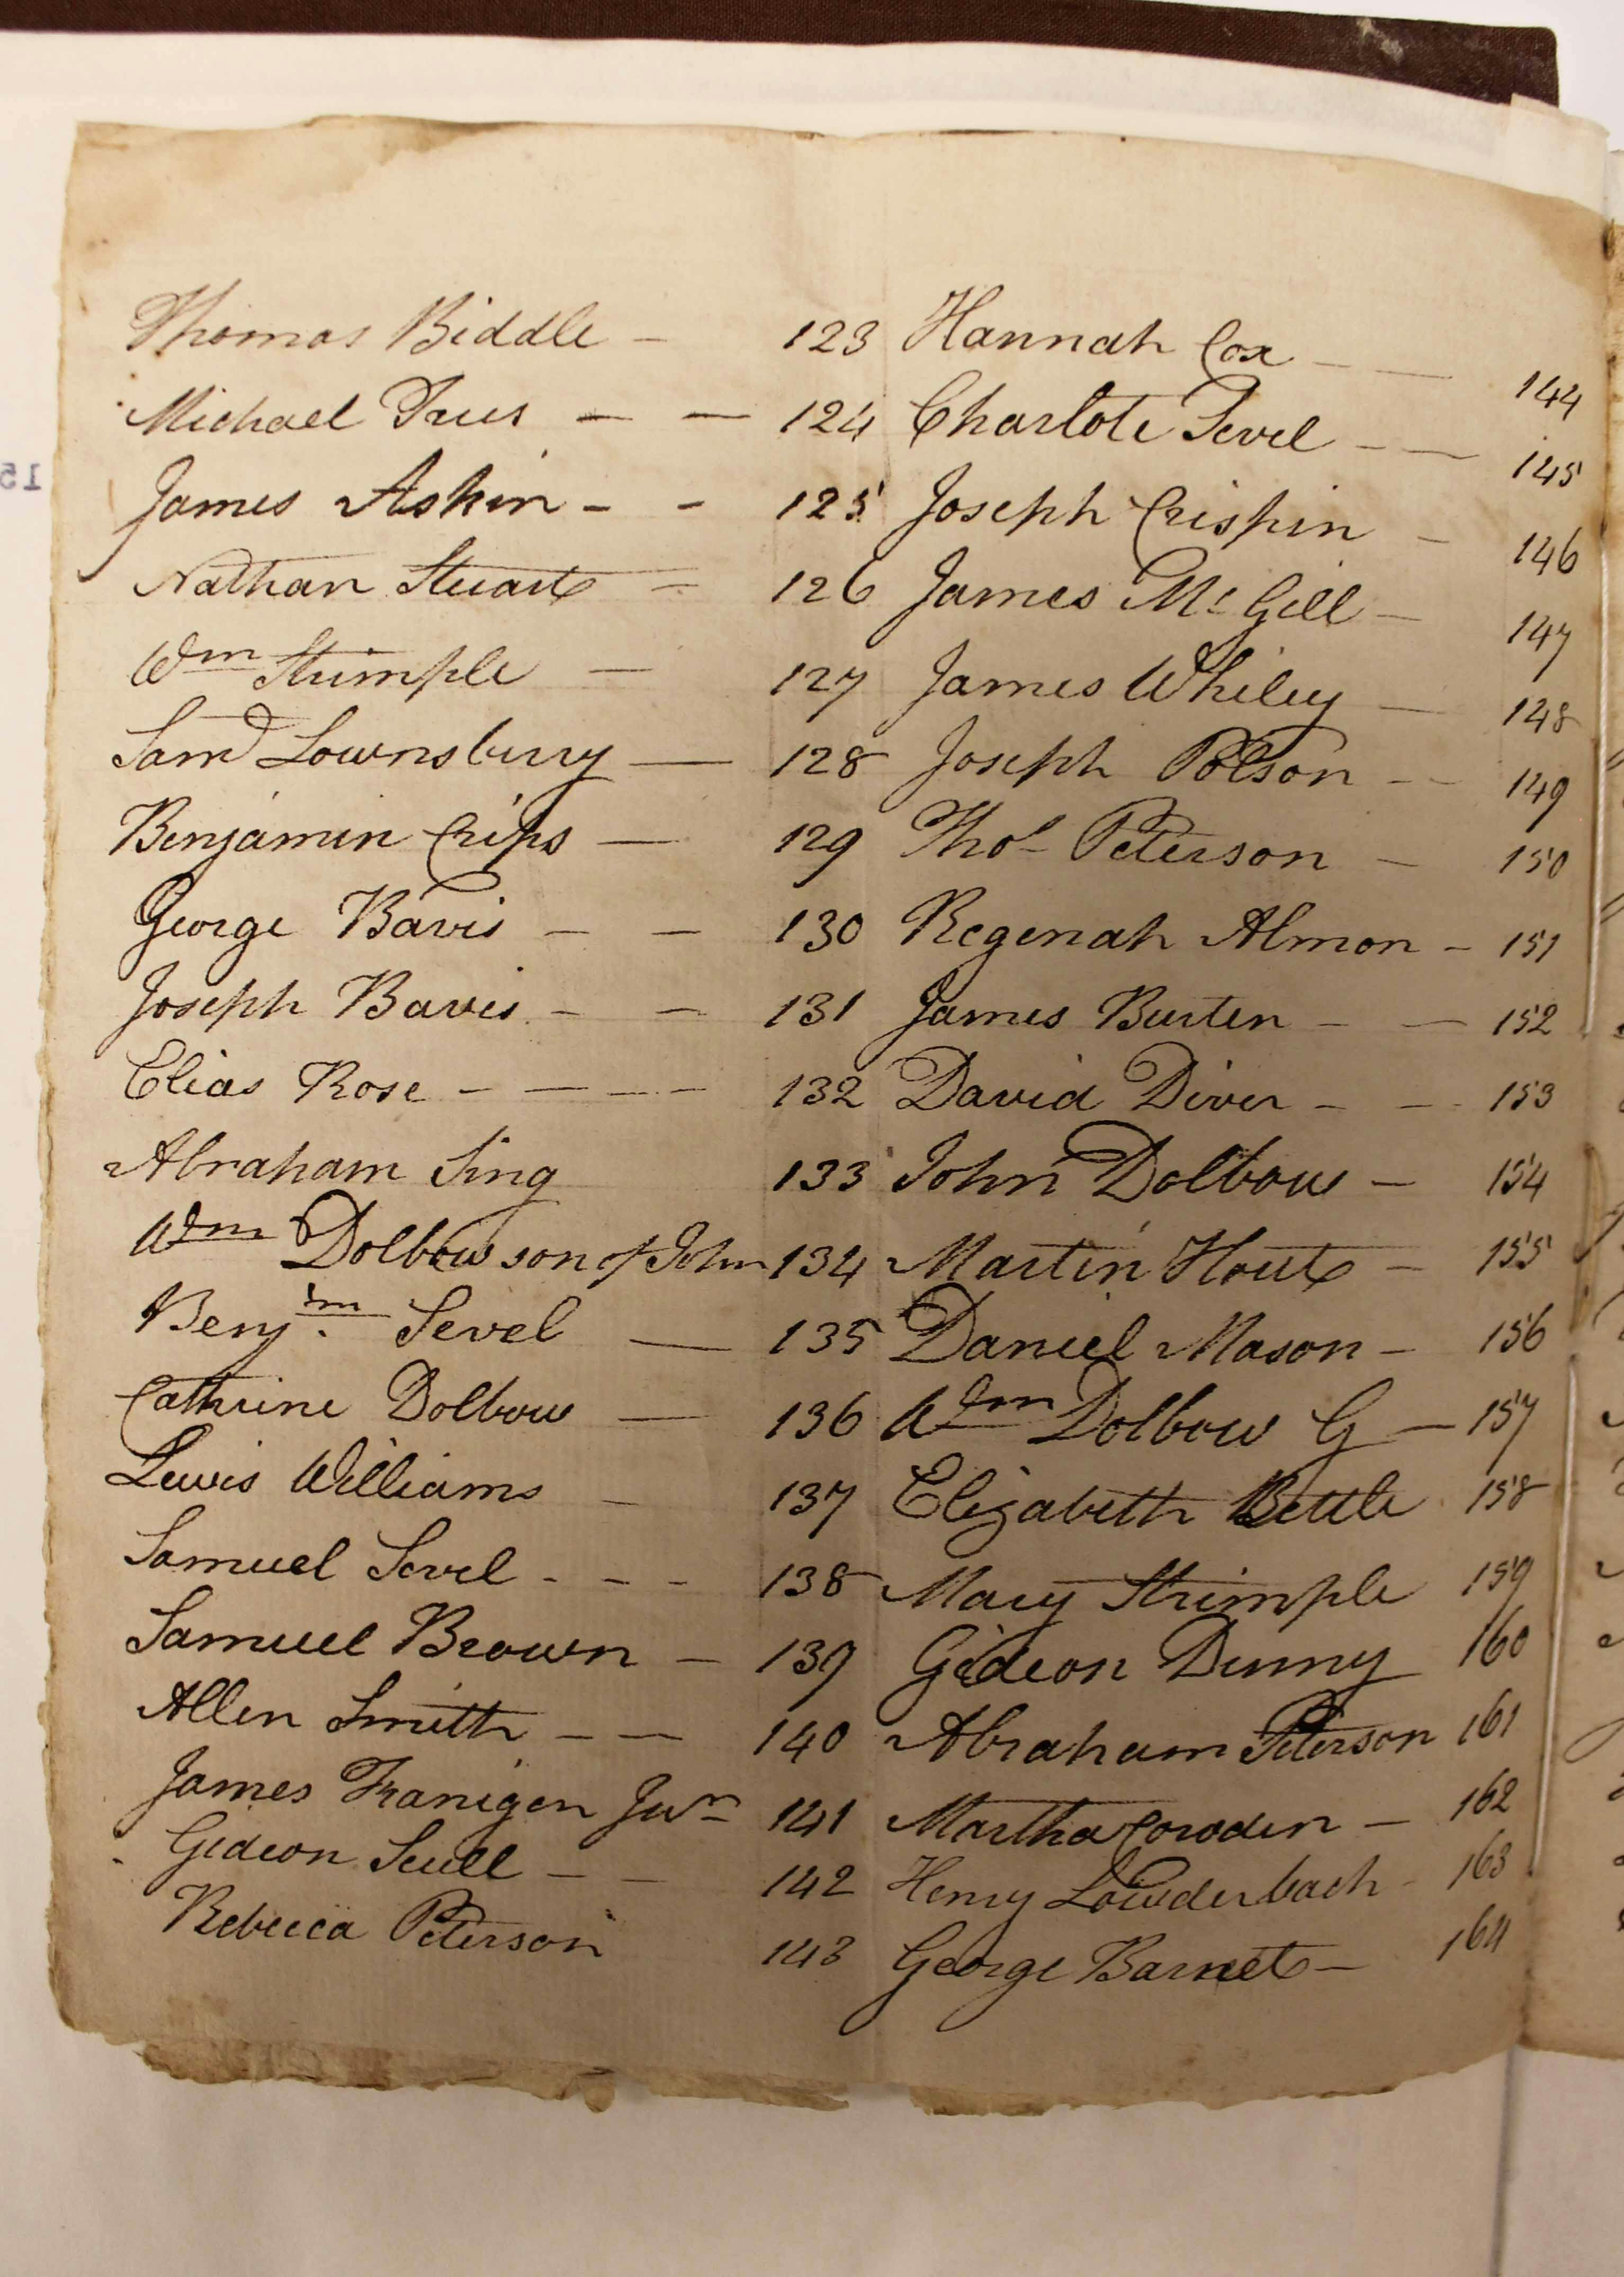 Thomas Biddle - 123 Hannah Cox - - 144
Michael - - 124 Charlote Sevel - - 145
James Askin - - 125 Joseph Crispin - 146
Nathan Stuart - 126 James Mc Gill - 147
Wm Strimple - 127 James Whiley - 148
Saml Lownsbury - 128 Joseph Polson - - 149
Benjamin Crips - 129 Thos Peterson - 150
George Bavis - - 130 Regenah Almon - 151
Joseph Bavis - - 131 James Burten - - 152
Elias Rose - - - - 132 David Diver - - 153
Abraham Sing 133 John Dolbow - 154
Wm Dolbow son of John 134 Martin Hout - 155
Benjm Sevel - 135 Daniel Mason - 156
Cathrine Dolbow - 136 Wm Dolbow G - 157
Lewis Williams - 137 Elizabeth Bettle 158
Samuel Sevel - - - 138 Mary Strimple 159
Samuel Brown - 139 Gideon Denny 160
Allen Smith - - 140 Abraham Peterson 161
James Franigen Junr 141 Martha Cowden - 162
Gideon Scull - - 142 Henry Lowderback - 163
Rebecca Peterson 143 George Barnet - 164
15